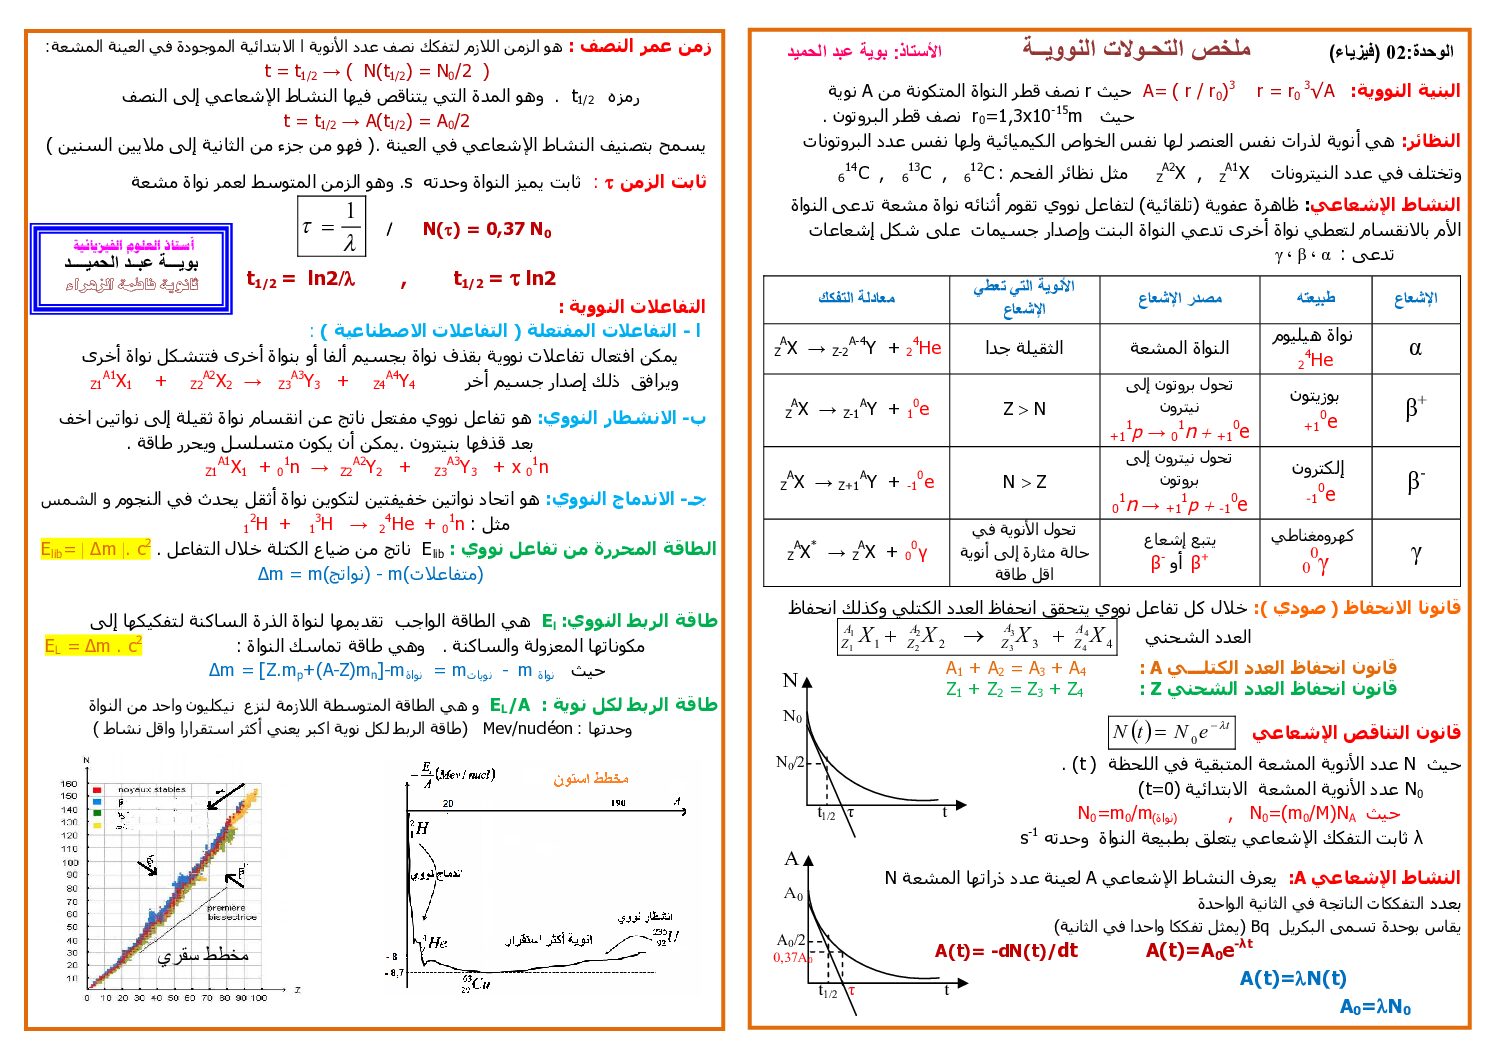 الوحدة:02 (فيزياء) ملخص التحـولات النوويـــة الأستاذ: بوية عبد الحميد
البنية النووية: A= ( r / r₀)³ r = r₀ ³√A حيث r نصف قطر النواة المتكونة من A نوية
حيث r₀=1,3x10⁻¹⁵m نصف قطر البروتون .
النظائر: هي أنوية لذرات نفس العنصر لها نفس الخواص الكيميائية ولها نفس عدد البروتونات
وتختلف في عدد النيترونات _Z^A1X , _Z^A2X مثل نظائر الفحم : ₆¹²C , ₆¹³C , ₆¹⁴C
النشاط الإشعاعي: ظاهرة عفوية (تلقائية) لتفاعل نووي تقوم أثنائه نواة مشعة تدعى النواة
الأم بالانقسام لتعطي نواة أخرى تدعي النواة البنت وإصدار جسيمات على شكل إشعاعات
تدعى : α ، β ، γ
الإشعاع طبيعته مصدر الإشعاع الأنوية التي تعطي الإشعاع معادلة التفكك
α نواة هيليوم ₂⁴He النواة المشعة الثقيلة جدا _Z^AX → _Z-2^A-4Y + ₂⁴He
β⁺ بوزيتون ₊₁⁰e تحول بروتون إلى نيترون ₊₁¹p → ₀¹n + ₊₁⁰e Z > N _Z^AX → _Z-1^AY + ₁⁰e
β⁻ إلكترون ₋₁⁰e تحول نيترون إلى بروتون ₀¹n → ₊₁¹p + ₋₁⁰e N > Z _Z^AX → _Z+1^AY + ₋₁⁰e
γ كهرومغناطي ₀⁰γ يتبع إشعاع β⁺ أو β⁻ تحول الأنوية في حالة مثارة إلى أنوية اقل طاقة _Z^AX* → _Z^AX + ₀⁰γ
قانونا الانحفاظ ( صودي ): خلال كل تفاعل نووي يتحقق انحفاظ العدد الكتلي وكذلك انحفاظ
العدد الشحني _Z₁^A₁X₁ + _Z₂^A₂X₂ → _Z₃^A₃X₃ + _Z₄^A₄X₄
قانون انحفاظ العدد الكتلـــي A : A₁ + A₂ = A₃ + A₄
قانون انحفاظ العدد الشحني Z : Z₁ + Z₂ = Z₃ + Z₄
قانون التناقص الإشعاعي N(t) = N₀e^-λt
حيث N عدد الأنوية المشعة المتبقية في اللحظة ( t) .
N₀ عدد الأنوية المشعة الابتدائية (t=0)
حيث N₀=(m₀/M)N_A , N₀=m₀/m(نواة)
λ ثابت التفكك الإشعاعي يتعلق بطبيعة النواة وحدته s⁻¹
N
N₀
N₀/2
t₁/₂ τ t
النشاط الإشعاعي A: يعرف النشاط الإشعاعي A لعينة عدد ذراتها المشعة N
بعدد التفككات الناتجة في الثانية الواحدة
يقاس بوحدة تسمى البكريل Bq (يمثل تفككا واحدا في الثانية)
A(t)= -dN(t)/dt A(t)=A₀e^-λt
A(t)=λN(t)
A₀=λN₀
A
A₀
A₀/2
0,37A₀
t₁/₂ τ t
زمن عمر النصف : هو الزمن اللازم لتفكك نصف عدد الأنوية ا الابتدائية الموجودة في العينة المشعة:
t = t₁/₂ → ( N(t₁/₂) = N₀/2 )
رمزه t₁/₂ . وهو المدة التي يتناقص فيها النشاط الإشعاعي إلى النصف
t = t₁/₂ → A(t₁/₂) = A₀/2
يسمح بتصنيف النشاط الإشعاعي في العينة .( فهو من جزء من الثانية إلى ملايين السنين )
ثابت الزمن τ : ثابت يميز النواة وحدته s. وهو الزمن المتوسط لعمر نواة مشعة
τ = 1/λ / N(τ) = 0,37 N₀
t₁/₂ = ln2/λ , t₁/₂ = τ ln2
أستاذ العلوم الفيزيائية
بويـــة عبـد الحميـــد
ثانوية فاطمة الزهراء
التفاعلات النووية :
ا - التفاعلات المفتعلة ( التفاعلات الاصطناعية ) :
يمكن افتعال تفاعلات نووية بقذف نواة بجسيم ألفا أو بنواة أخرى فتتشكل نواة أخرى
ويرافق ذلك إصدار جسيم أخر _Z1^A1X₁ + _Z2^A2X₂ → _Z3^A3Y₃ + _Z4^A4Y₄
ب- الانشطار النووي: هو تفاعل نووي مفتعل ناتج عن انقسام نواة ثقيلة إلى نواتين اخف
بعد قذفها بنيترون .يمكن أن يكون متسلسل ويحرر طاقة .
_Z1^A1X₁ + ₀¹n → _Z2^A2Y₂ + _Z3^A3Y₃ + x ₀¹n
جـ- الاندماج النووي: هو اتحاد نواتين خفيفتين لتكوين نواة أثقل يحدث في النجوم و الشمس
مثل : ₁²H + ₁³H → ₂⁴He + ₀¹n
الطاقة المحررة من تفاعل نووي : E_lib ناتج من ضياع الكتلة خلال التفاعل . E_lib= | Δm |. c²
Δm = m(نواتج) - m(متفاعلات)
طاقة الربط النووي: E_l هي الطاقة الواجب تقديمها لنواة الذرة الساكنة لتفكيكها إلى
مكوناتها المعزولة والساكنة . وهي طاقة تماسك النواة : E_L = Δm . c²
حيث Δm = [Z.m_p+(A-Z)m_n]-m نواة = m نويات - m نواة
طاقة الربط لكل نوية : E_L/A و هي الطاقة المتوسطة اللازمة لنزع نيكليون واحد من النواة
وحدتها : Mev/nucléon (طاقة الربط لكل نوية اكبر يعني أكثر استقرارا واقل نشاط )
N
160
150
140
130
120
110
100
90
80
70
60
50
40
30
20
10
noyaux stables
β
première
bissectrice
مخطط سقري
0 10 20 30 40 50 60 70 80 90 100 Z
-E_l/A (Mev/nucl)
مخطط استون
20 190 A
²H
اندماج نووي
⁴He
انوية أكثر استقرار
انشطار نووي
²³⁵₉₂U
- 8
- 8,7
⁶³₂₉Cu